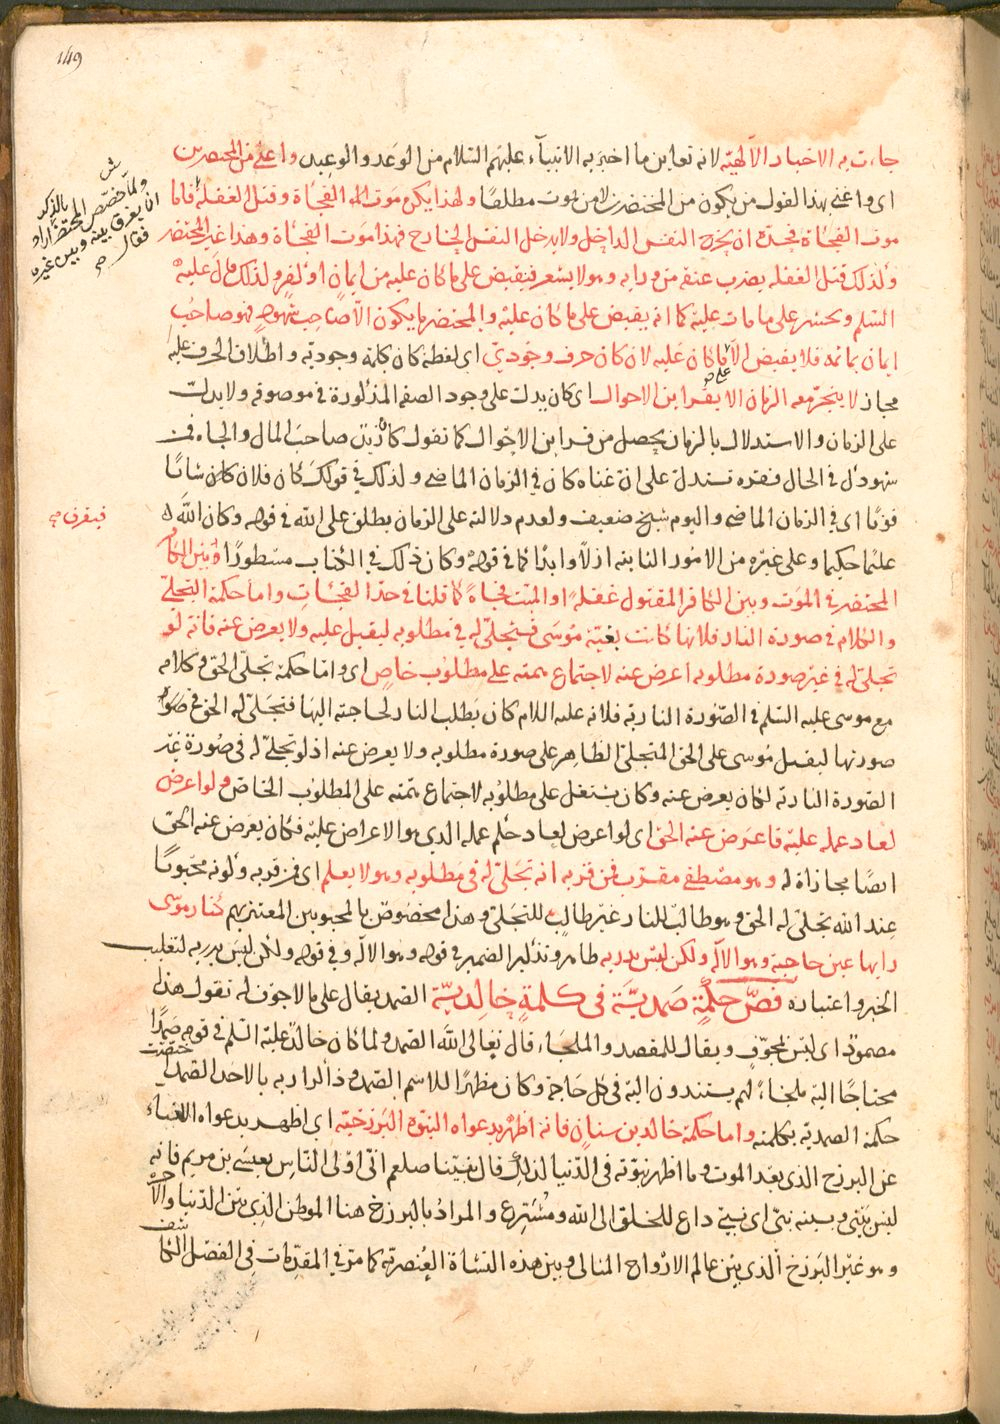 149
جاءت به الاخبار الآلهيّة لانه تعاين ما اخبر به الانبيآء عليهم السّلام من الوعد والوعيد واعني من المحتضرين
اى واعني بهذا القول من يكون من المحتضرين لا من يموت مطلقًا ولهذا يكره موت الفجأة وقتل الغفلة فاما
موت الفجأة فحدّه ان يخرج النفس الداخل ولا يدخل النفس الخارج فهذا موت الفجأة وهذا غير المحتضر
وكذلك قتل الغفلة بضرب عنقه من ورايه وهو لا يشعر فيقبض على ما كان عليه من ايمان او كفر ولذلك قال عليه
السّلم ويحشر على ما مات عليه كما انه يقبض على ما كان عليه والمحتضر ما يكون الّا صاحب شهود فهو صاحب
ايمان بما ثمه فلا يقبض الّا على ما كان عليه لان كان حرف وجودي اى لفظة كان كلمة وجودية واطلاق الحرف عليه
مجاز لا ينجرّ معه الزمان الا بقراين الاحوال اى كان يدل على وجود الصفة المذكورة في موصوفه ولا يدلّ
على الزمان والاستدلال بالزمان يحصل من قراين الاحوال كما تقول كان زيد صاحب المال والجاه فمن
شهودك في الحال فقره تستدل على ان غناه كان في الزمان الماضي وكذلك في قولك كان فلان شابًا
قويًا اى في الزمان الماضي واليوم شيخ ضعيف ولعدم دلالته على الزمان يطلق على الله في قوله وكان الله
عليمًا حكيما وعلى غيره من الامور الثابتة ازلًا وابدًا كما في قوله وكان ذلك في الكتاب مسطورًا وبين الكافر
المحتضر في الموت وبين الكافر المقتول غفلةً او الميّت فجأةً كما قلنا في حدّ الفجأة واما حكمة التجلّي
والكلام في صورة النار فلانها كانت بغية موسى فتجلّى له في مطلوبه ليقبل عليه ولا يعرض عنه فانه لو
تجلّى له في غير صورة مطلوبه اعرض عنه لاجتماع همّته على مطلوب خاصٍ اى واما حكمة تجلّي الحق وكلامه
مع موسى عليه السّلم في الصّورة النارية فلانه عليه السلام كان يطلب النار لحاجته اليها فتجلّى له الحق في
صورتها ليقبل موسى على الحق المتجلّي الظاهر على صورة مطلوبه ولا يعرض عنه اذ لو تجلّى له في صورة غير
الصّورة النارية لكان يعرض عنه وكان يشتغل على مطلوبه لاجتماع همّته على المطلوب الخاص ولو اعرض
لعاد عمله عليه فاعرض عنه الحق اى لو اعرض لعاد حكم عمله الذي هو الاعراض عليه فكان يعرض عنه الحق
ايضًا مجازاة له وهو مصطفى مقرّب فمن قربه انه تجلّى له في مطلوبه وهو لا يعلم اى فمن قربه وكونه محبوبًا
عند الله تجلّى له الحق وهو طالب للنار غير طالب للتجلّي وهذا مخصوص بالمحبوبين المعتنى بهم كنار موسى
رآها عين حاجته وهو الآله ولكن ليس يدريه ظاهر وتذكير الضمير في قوله وهو الاله وفي قوله ولكن ليس يدريه لتغليب
الخبر واعتباره فصّ حكمة صمديّة في كلمة خالديّة الصّمد يقال على ما لا جوف له تقول هذا
مصمود اى ليس بمجوّف ويقال للمقصد والملجاء قال تعالى الله الصّمد ولما كان خالد عليه السّلم في قومه صمدًا
محتاجًا اليه ملجاءً لهم يستندون اليه في كل حاجة وكان مظهرًا للاسم الصّمد وذاكرا ربه بالاحد الصّمد اختصّت
حكمة الصمدية بكلمته واما حكمة خالد بن سنان فانه اظهر بدعواه النبوّة البرزخيّة اى اظهر بدعواه الانباء
عن البرزخ الذي بعد الموت وما اظهر نبوّته في الدّنيا لذلك قال نبيّنا صلعم انّى اولى النّاس بعيسى بن مريم فانه
ليس بيني وبينه نبيّ اى نبيّ داع للخلق الى الله ومشرّع والمراد بالبرزخ هنا الموطن الذي بين الدّنيا والآخرة
وهو غير البرزخ الّذي بين عالم الارواح المثالي وبين هذه النشأة العنصرية كما مرّ في المقدّمات في الفصل
ش
ولمّا خصّص المحتضر بالذكر
اراد ان يفرق بينه وبين غيره
فقال صح
فيفرق صح